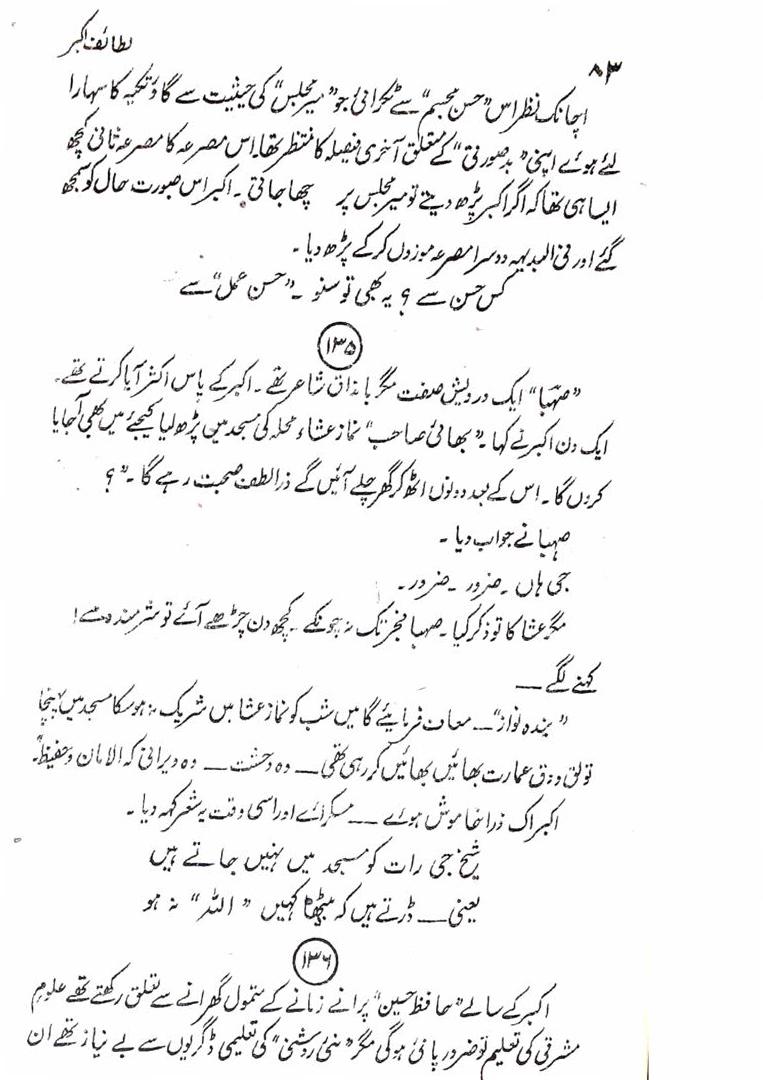 لطائف اکبر
۸۳
اچانک نظر اس ”حسن مجسم“ سے ٹکرائی جو ”میر مجلس“ کی حیثیت سے گاؤ تکیہ کا سہارا
لئے ہوئے اپنی ”بد صورتی“ کے متعلق آخری فیصلہ کا منتظر تھا۔ اس مصرعہ کا مصرعہ ثانی کچھ
ایسا ہی تھا کہ اگر اکبر پڑھ دیتے تو میر مجلس پر چھا جاتی ۔ اکبر اس صورت حال کو سمجھ
گئے اور فی البدیہہ دوسرا مصرعہ موزوں کر کے پڑھ دیا ۔
کس حسن سے ؟ یہ بھی تو سنو ۔ ”حسن عمل“ سے
۱۳۵
”صہبا“ ایک درویش صفت مگر بامذاق شاعر تھے ۔ اکبر کے پاس اکثر آیا کرتے تھے۔
ایک دن اکبر نے کہا ۔ ”بھائی صاحب“ نماز عشاء محلہ کی مسجد میں پڑھ لیا کیجئے میں بھی آجایا
کروں گا ۔ اس کے بعد دونوں اٹھ کر گھر چلے آئیں گے ذرا لطف صحبت رہے گا ۔“ ؟
صہبا نے جواب دیا ۔
جی ہاں ۔ ضرور ۔ ضرور ۔
مگر عشا کا تو ذکر کیا ۔ صہبا فجر تک نہ چونکے ۔ کچھ دن چڑھے آئے تو شرمندہ سے !
کہنے لگے ــــ
”بندہ نواز“ ــ معاف فرمایئے گا میں شب کو نماز عشا میں شریک نہ ہو سکا مسجد میں پہنچا
تو لق و دق عمارت بھائیں بھائیں کر رہی تھی ــ وہ وحشت ــ وہ ویرانی کہ الامان و حفیظ۔“
اکبر اک ذرا خاموش ہوئے ــ مسکرائے اور اسی وقت یہ شعر کہہ دیا ۔
شیخ جی رات کو مسجد میں نہیں جاتے ہیں
یعنی ــ ڈرتے ہیں کہ بیٹھا کہیں ”اللہ“ نہ ہو
۱۳۶
اکبر کے سالے ”حافظ حسین“ پرانے زمانے کے متمول گھرانے سے تعلق رکھتے تھے علوم
مشرقی کی تعلیم تو ضرور پائی ہوگی مگر ”نئی روشنی“ کی تعلیمی ڈگریوں سے بے نیاز تھے ان